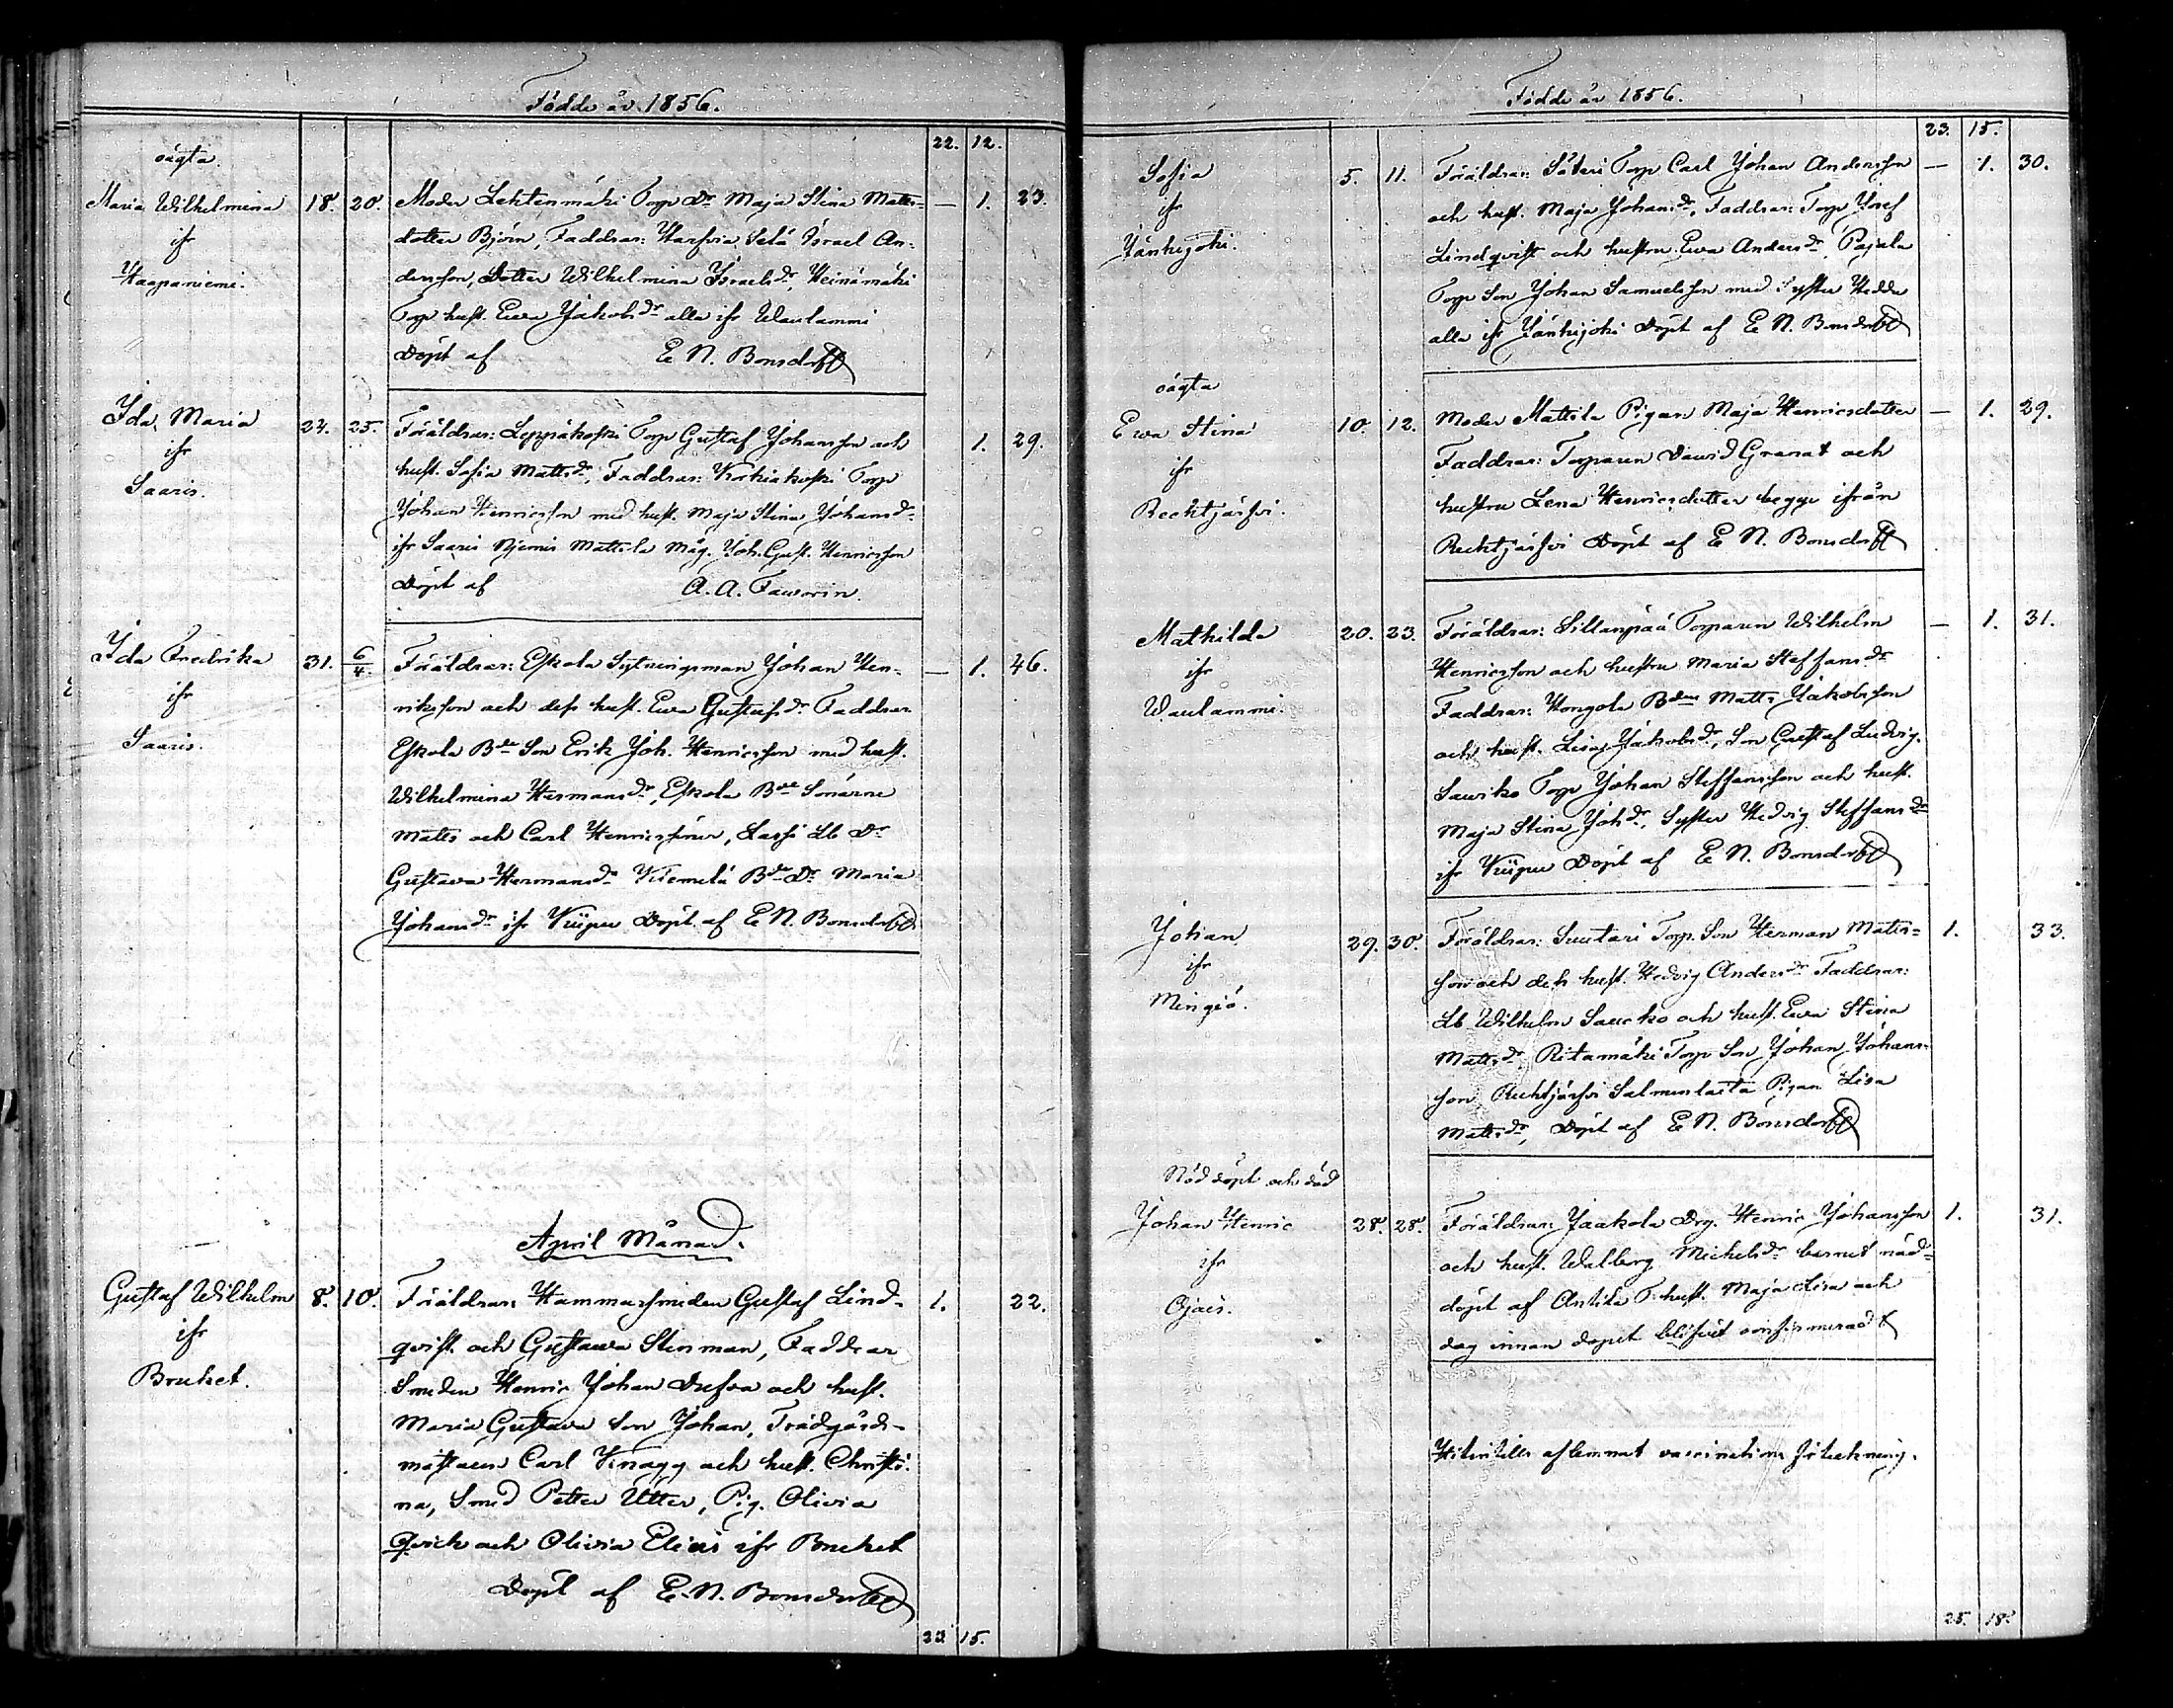 Födde år 1856.
22. 12.
oägta
Maria Wilhelmina 18. 20. Moder Lehtenmäki Torp Dr Maja Stina Matts- — 1. 23.
ifr dotter Björn, Faddrar: Israel An-
Haapaniemi. dersson, Dotter Wilhelmina Israelsdr, Heinämäki
Torp hust. Ewa Jakobsdr alla ifr Waulammi
Döpt af E. N. Bonsdorff
Ida Maria 22. 25. Föräldrar: Leppäkoski Torp Gustaf Johansson och 1. 29.
ifr hust. Sofia Mattsdr, Faddrar: Korkiakoski Torp
Saaris. Johan Henricsson med hust. Maja Stina Johansdr
ifr Saaris Mattila Måg. Joh. Gust. Henricsson
Döpt af A. A. Faworin.
Ida Fredrika 31. 6/4. Föräldrar: Eskola Sytningsman Johan Hen- — 1. 46.
ifr riksson och dess hust. Ewa Gustafsdr Faddrar
Saaris. Eskola Bde Son Erik Joh. Henricsson med hust.
Wilhelmina Hermansdr, Eskola Bde Sönerne
Matts och Carl Henricssöner, Lassi Lb Dr
Gustava Hermansdr Klemelä Bde Dr Maria
Johansdr ifr Kuipu Döpt af E. N. Bonsdorff
April Månad.
Gustaf Wilhelm 8. 10. Föräldrar: Hammarsmeden Gustaf Lind- 1. 22.
ifr qvist och Gustawa Stenman, Faddrar
Bruket. Smeden Henric Johan Dufva och hust.
Maria Gustava Son Johan, Trädgårds-
mästaren Carl Knagg och hust. Christi-
na, Smed Petter Utter, Pig. Olivia
Qvick och Olivia Elieis ifr Bruket
Döpt af E. N. Bonsdorff
23 15.
Födde år 1856.
23. 15.
Sofia 5. 11. Föräldrar: Säteri Torp Carl Johan Andersson — 1. 30.
ifr och hust. Maja Johansdr, Faddrar: Torp Josef
Jänhijoki. Lindqvist och hustru Ewa Andersdr, Pajula
Torp Son Johan Samuelsson med Syster Hedda
alla ifr Jänhijoki Döpt af E. N. Bonsdorff
oägta
Ewa Stina 10. 12. Moder Mattila Pigan Maja Henricsdotter — 1. 29.
ifr Faddrar: Torparen David Granat och
Rechtjärfvi. hustru Lena Henricsdotter begge ifrån
Rechtjärfvi Döpt af E. N. Bonsdorff
Mathilda 20. 23. Föräldrar: Sillanpää Torparen Wilhelm — 1. 31.
ifr Henricsson och hustru Maria Staffansdr
Waulammi. Faddrar: Hongola Bden Matts Jakobsson
och hust. Lisa Jakobsdr, Son Gustaf Ludvig.
Sauriko Torp Johan Steffansson och hust.
Maja Stina Johdr, Syster Hedvig Steffansdr
ifr Kuipu Döpt af E. N. Bonsdorff
Johan 29. 30. Föräldrar: Suutari Torp. Son Herman Matts- 1. 33.
ifr son och dess hust. Hedvig Andersdr Faddrar:
Mingiö. Lb Wilhelm Saurko och hust. Ewa Stina
Mattsdr Ritamäki Torp Son Johan Johans-
son Rechtjärfvi Salmenlaita Pigan Lisa
Mattsdr, Döpt af E. N. Bonsdorff
Nöd döpt och död
Johan Henric 28. 28. Föräldrar: Jaakola Drg. Henric Johansson 1. 31.
ifr och hust. Walborg Michelsdr barnet nöd-
Ojais. döpt af Anttila T. hust. Maja Lisa och
dog innan dopet blifvit confirmerad
Hitintills aflemnat vaccinations förtekning.
25. 18.